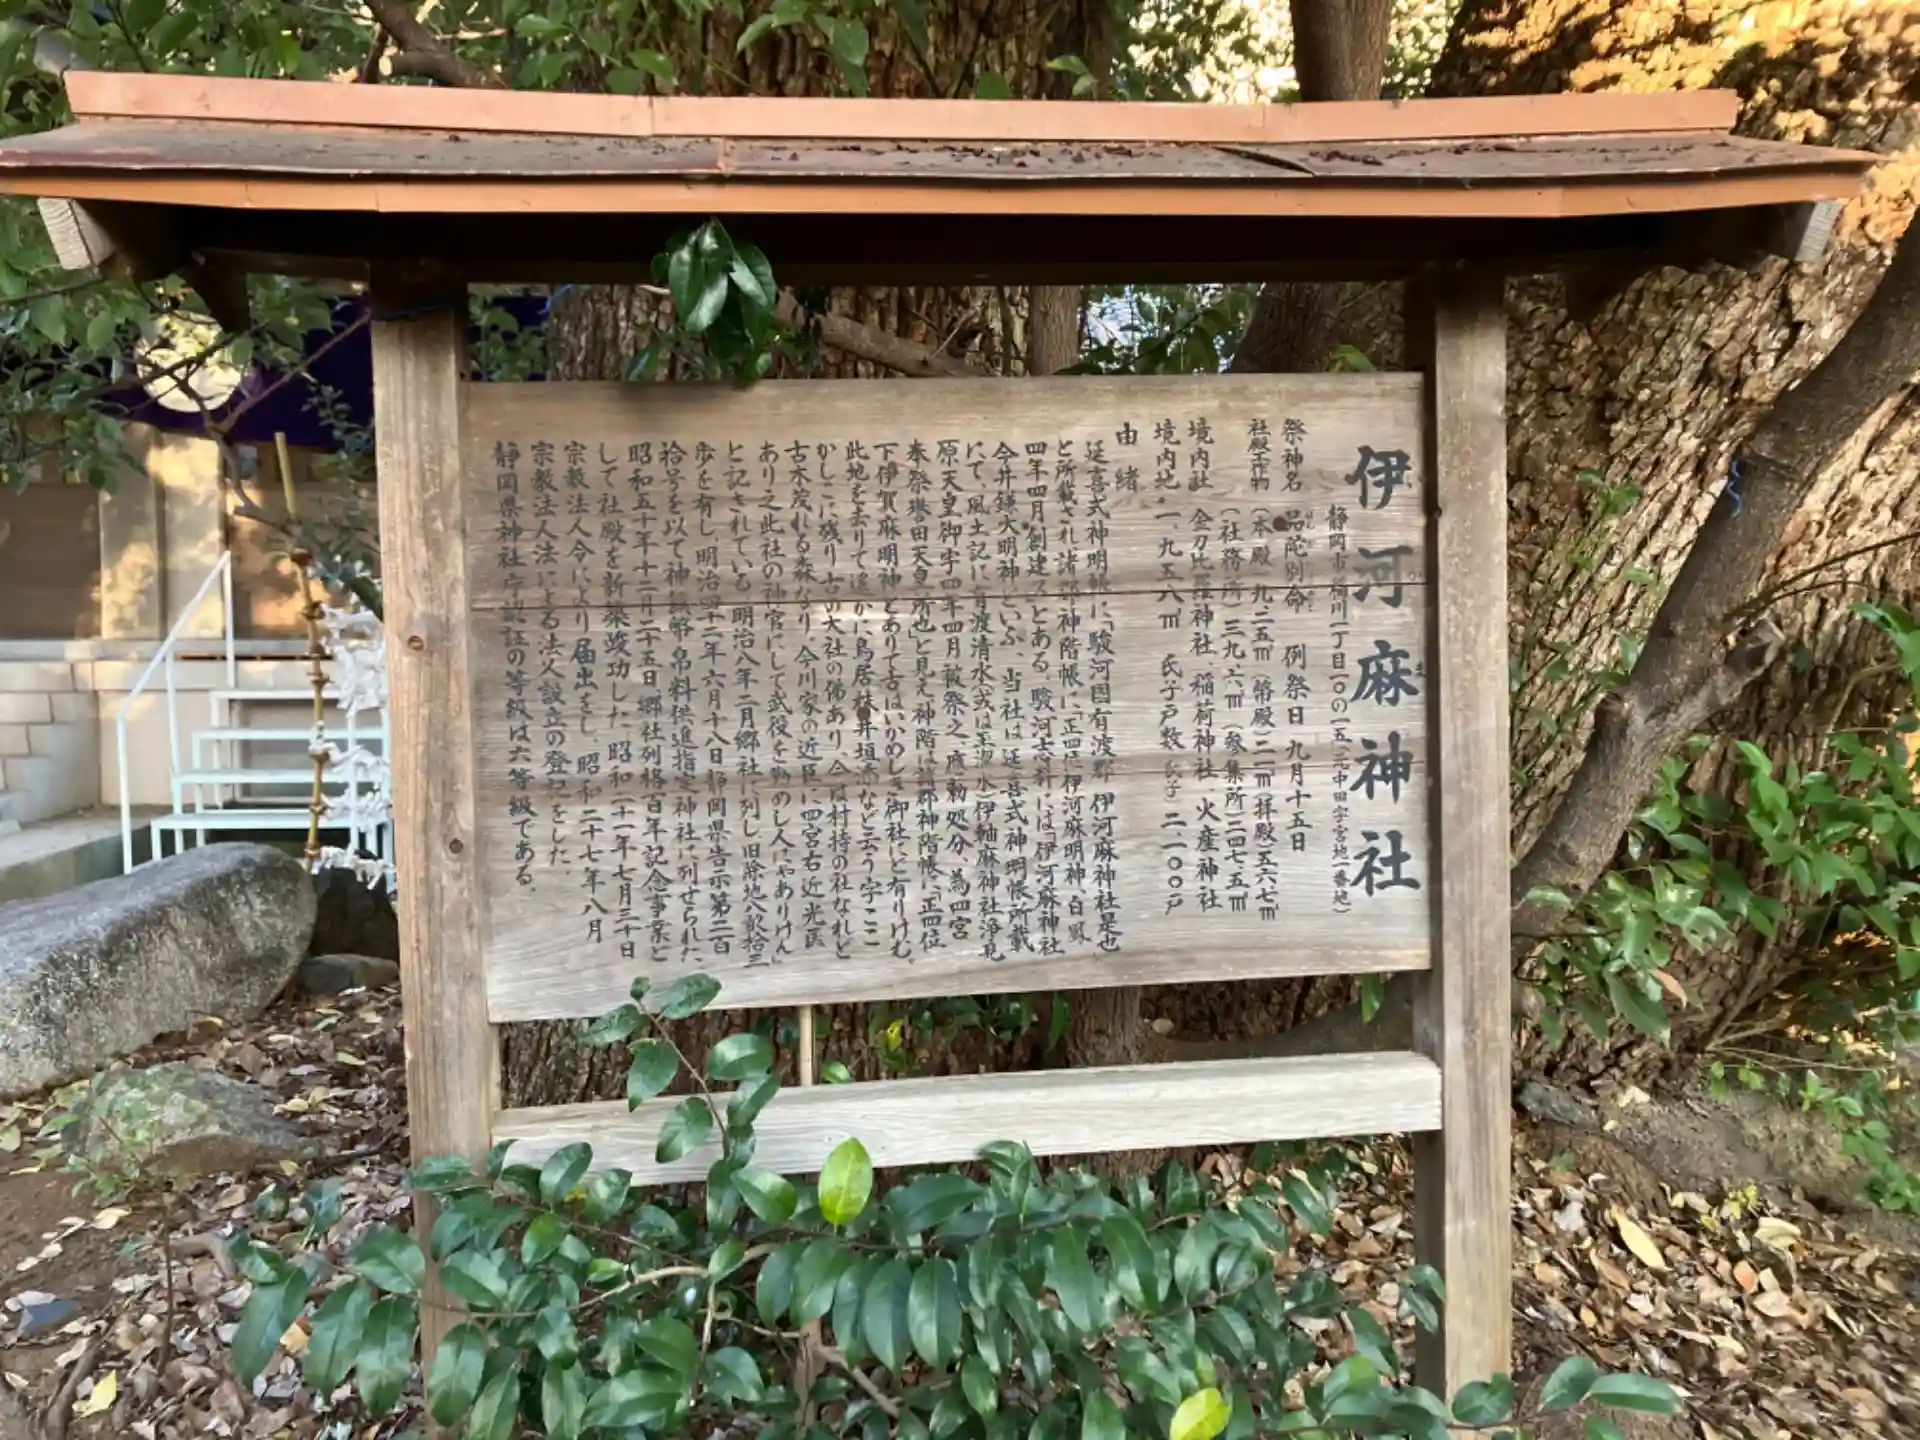 伊河麻神社
静岡市稲川一丁目一〇の一五(元中田字宮地一番地)
祭神名 品陀別命 例祭日 九月十五日
社殿工作物 (本殿)九.二五㎡(幣殿)二一㎡(拝殿)五六七㎡
(社務所)三九.六㎡(参集所)二四七五㎡
境内社 金刀比羅神社、稲荷神社、火産神社
境内地 一、九五八㎡ 氏子戸数 二、一〇〇戸
由緒
延喜式神明帳に「駿河国有渡郡 伊河麻神社是也
と所載され諸郡神階帳に「正四位伊河麻明神、白鳳
四年四月創建 とある。駿河志料には「伊河麻神社
今井鎌大明神といふ、当社は延喜式神明帳所載
にて、風土記に有渡清水(或は 水)伊軸麻神社浄見
原天皇御宇四年四月被祭之、應勅処分、為四宮
奉祭譽田天皇所也」と見え神階は諸郡神階帳に「正四位
下伊賀麻明神とありて古はいかめしき御社にと有りけむ。
此地を去りて遙かに鳥居 井垣添など云う字ここ
かしこに残り古の大社の俤あり、今は村持の社なれど
古木茂れる森なり。今川家の近臣に四宮右近光匡
あり之此社の神官にして武役を勤めし人にやありけん」
と記されている 明治八年二月郷社に列し旧除地八 拾三
歩を有し、明治四十二年六月十八日静岡県告示第二百
拾号を以て神饌幣帛料供進指定神社に列せられた、
昭和五十年十二月二十五日郷社列格百年記念事業と
して社殿を新築竣功した 昭和二十一年七月三十日
宗教法人令により届出をし、昭和二十七年八月
宗教法人法による法人設立の登記をした。
静岡県神社庁認証の等級は六等級である。